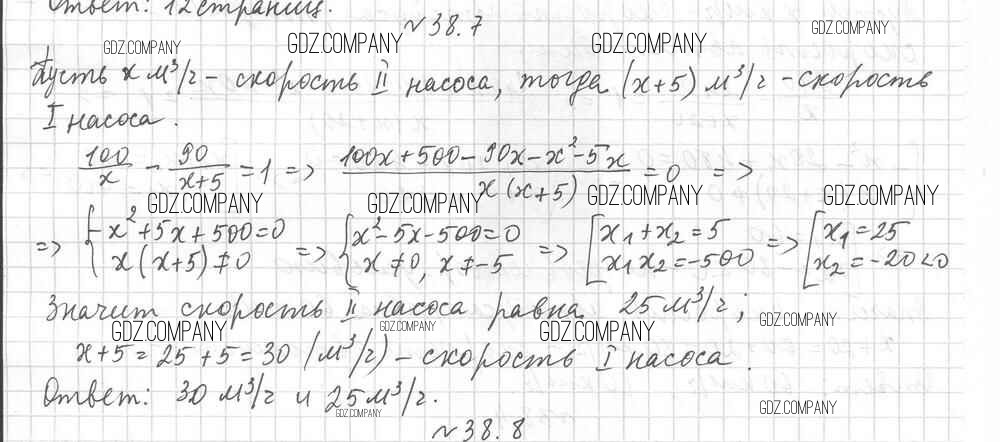 Ответ: 12 страниц.
№38.7
GDZ.COMPANY GDZ.COMPANY GDZ.COMPANY GDZ.COMPANY
Пусть x м³/г - скорость II насоса, тогда (x+5) м³/г - скорость
I насоса.
100/x - 90/(x+5) = 1 => (100x+500-90x-x²-5x)/(x(x+5)) = 0 =>
GDZ.COMPANY GDZ.COMPANY GDZ.COMPANY GDZ.COMPANY
=> { -x²+5x+500=0 => { x²-5x-500=0 => [ x₁+x₂=5 => [ x₁=25
x(x+5)≠0 x≠0, x≠-5 x₁x₂=-500 x₂=-20<0
Значит скорость II насоса равна 25 м³/г;
GDZ.COMPANY GDZ.COMPANY GDZ.COMPANY GDZ.COMPANY
x+5=25+5=30 (м³/г) - скорость I насоса.
Ответ: 30 м³/г и 25 м³/г.
GDZ.COMPANY GDZ.COMPANY
№38.8